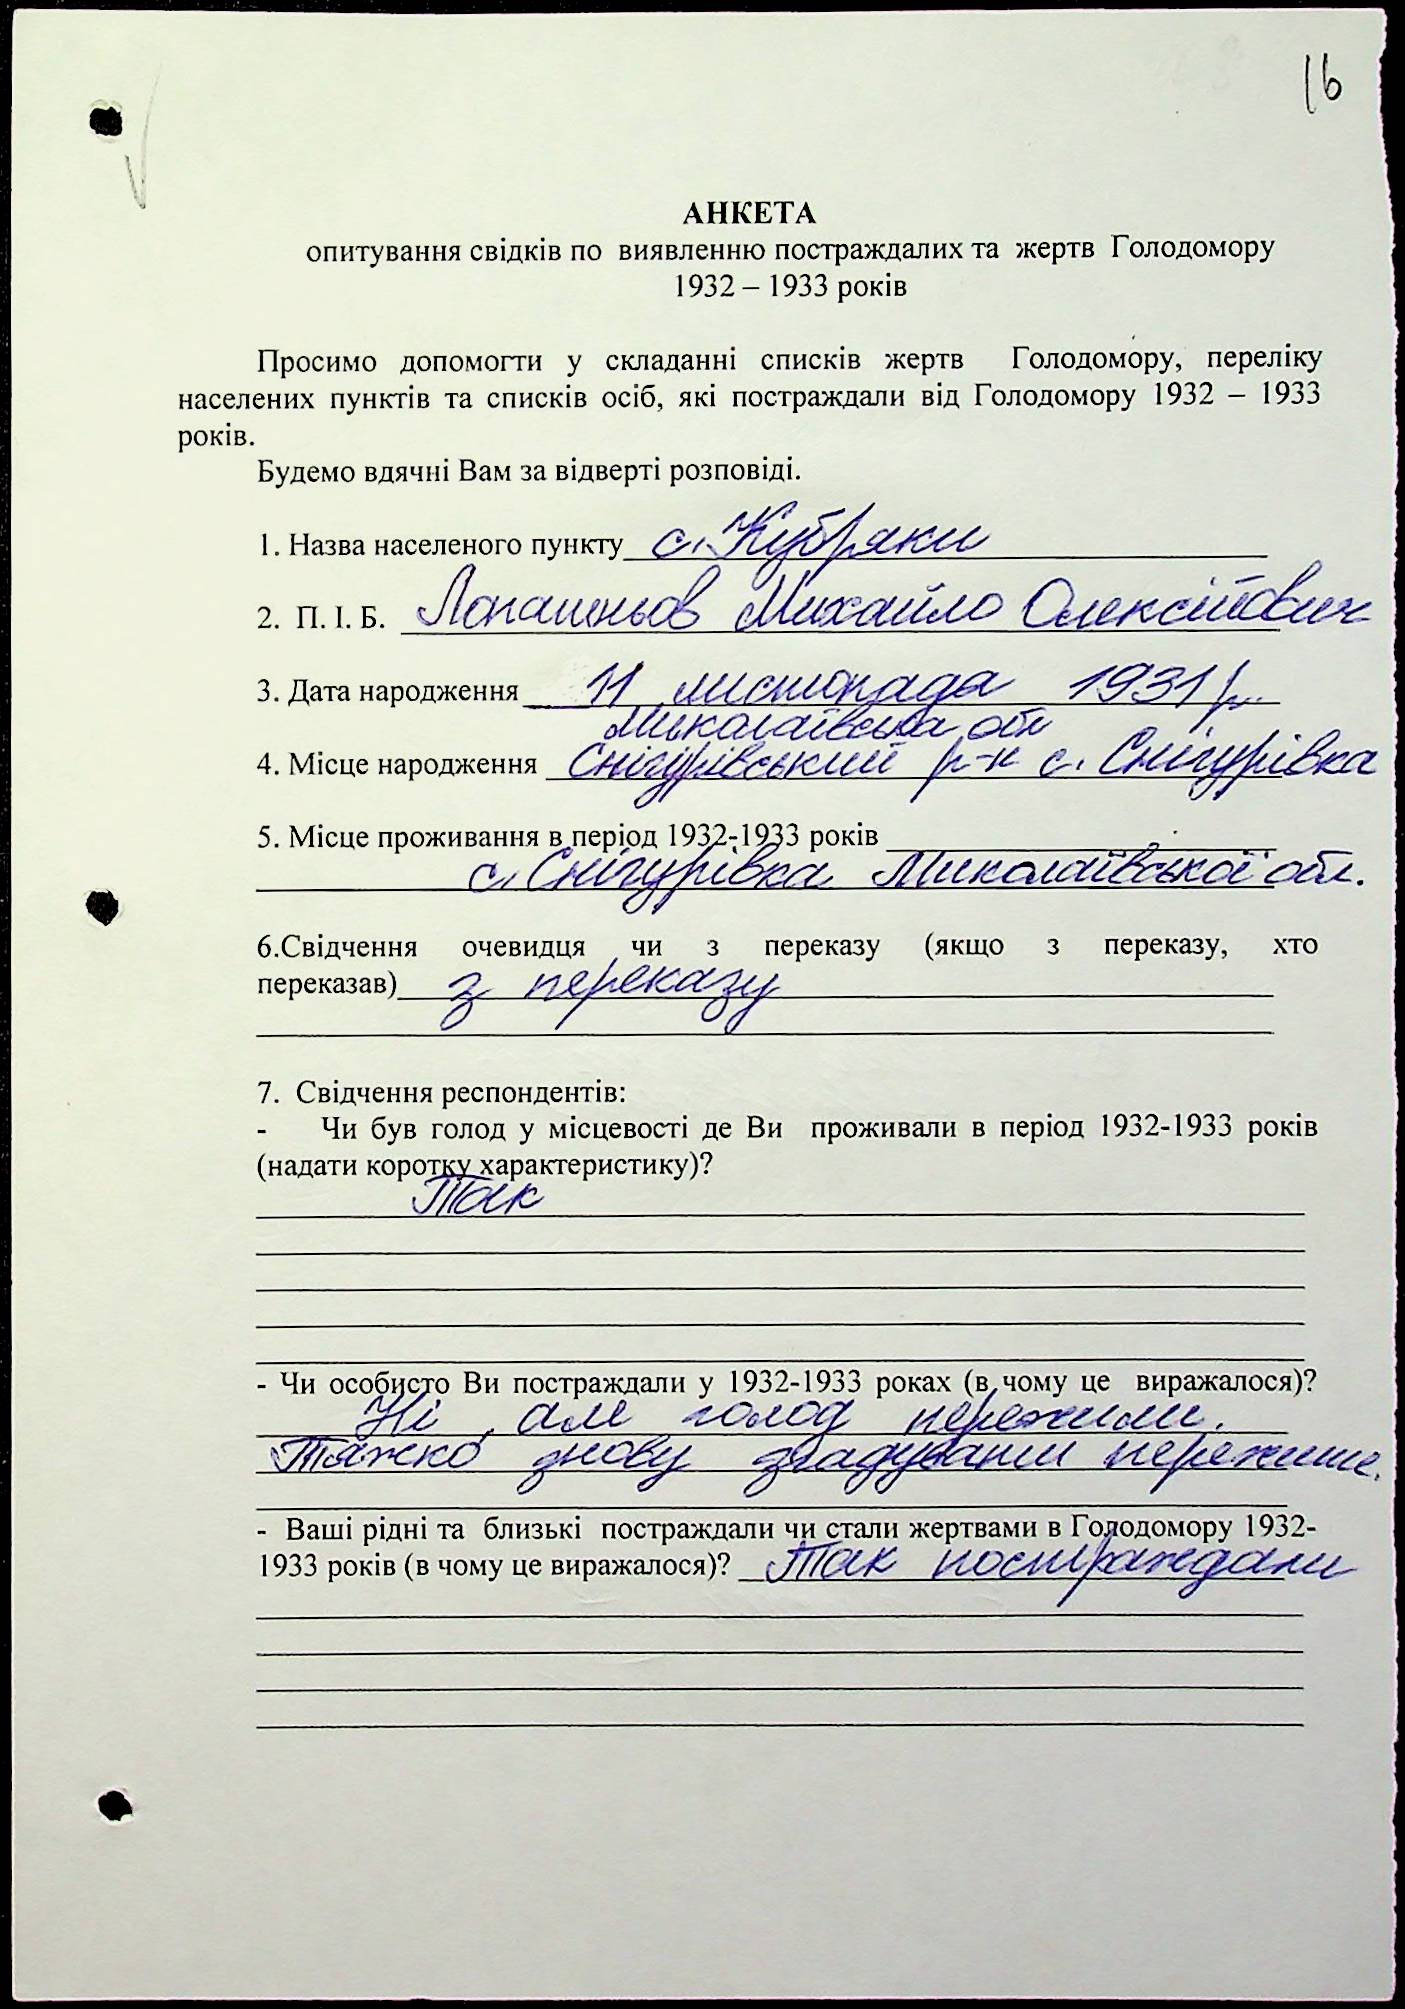 16
АНКЕТА
опитування свідків по виявленню постраждалих та жертв Голодомору
1932 – 1933 років
Просимо допомогти у складанні списків жертв Голодомору, переліку
населених пунктів та списків осіб, які постраждали від Голодомору 1932 – 1933
років.
Будемо вдячні Вам за відверті розповіді.
1. Назва населеного пункту с. Кубряки
2. П. І. Б. Михайло Олексійович
3. Дата народження 11 листопада 1931 р.
Миколаївська обл
4. Місце народження Снігурівський р-н с. Снігурівка
5. Місце проживання в період 1932-1933 років
с. Снігурівка Миколаївської обл.
6.Свідчення очевидця чи з переказу (якщо з переказу, хто
переказав) з переказу
7. Свідчення респондентів:
- Чи був голод у місцевості де Ви проживали в період 1932-1933 років
(надати коротку характеристику)?
Так
- Чи особисто Ви постраждали у 1932-1933 роках (в чому це виражалося)?
Ні, але голод пережили.
Тяжко знову згадувати пережите.
- Ваші рідні та близькі постраждали чи стали жертвами в Голодомору 1932-
1933 років (в чому це виражалося)? Так постраждали